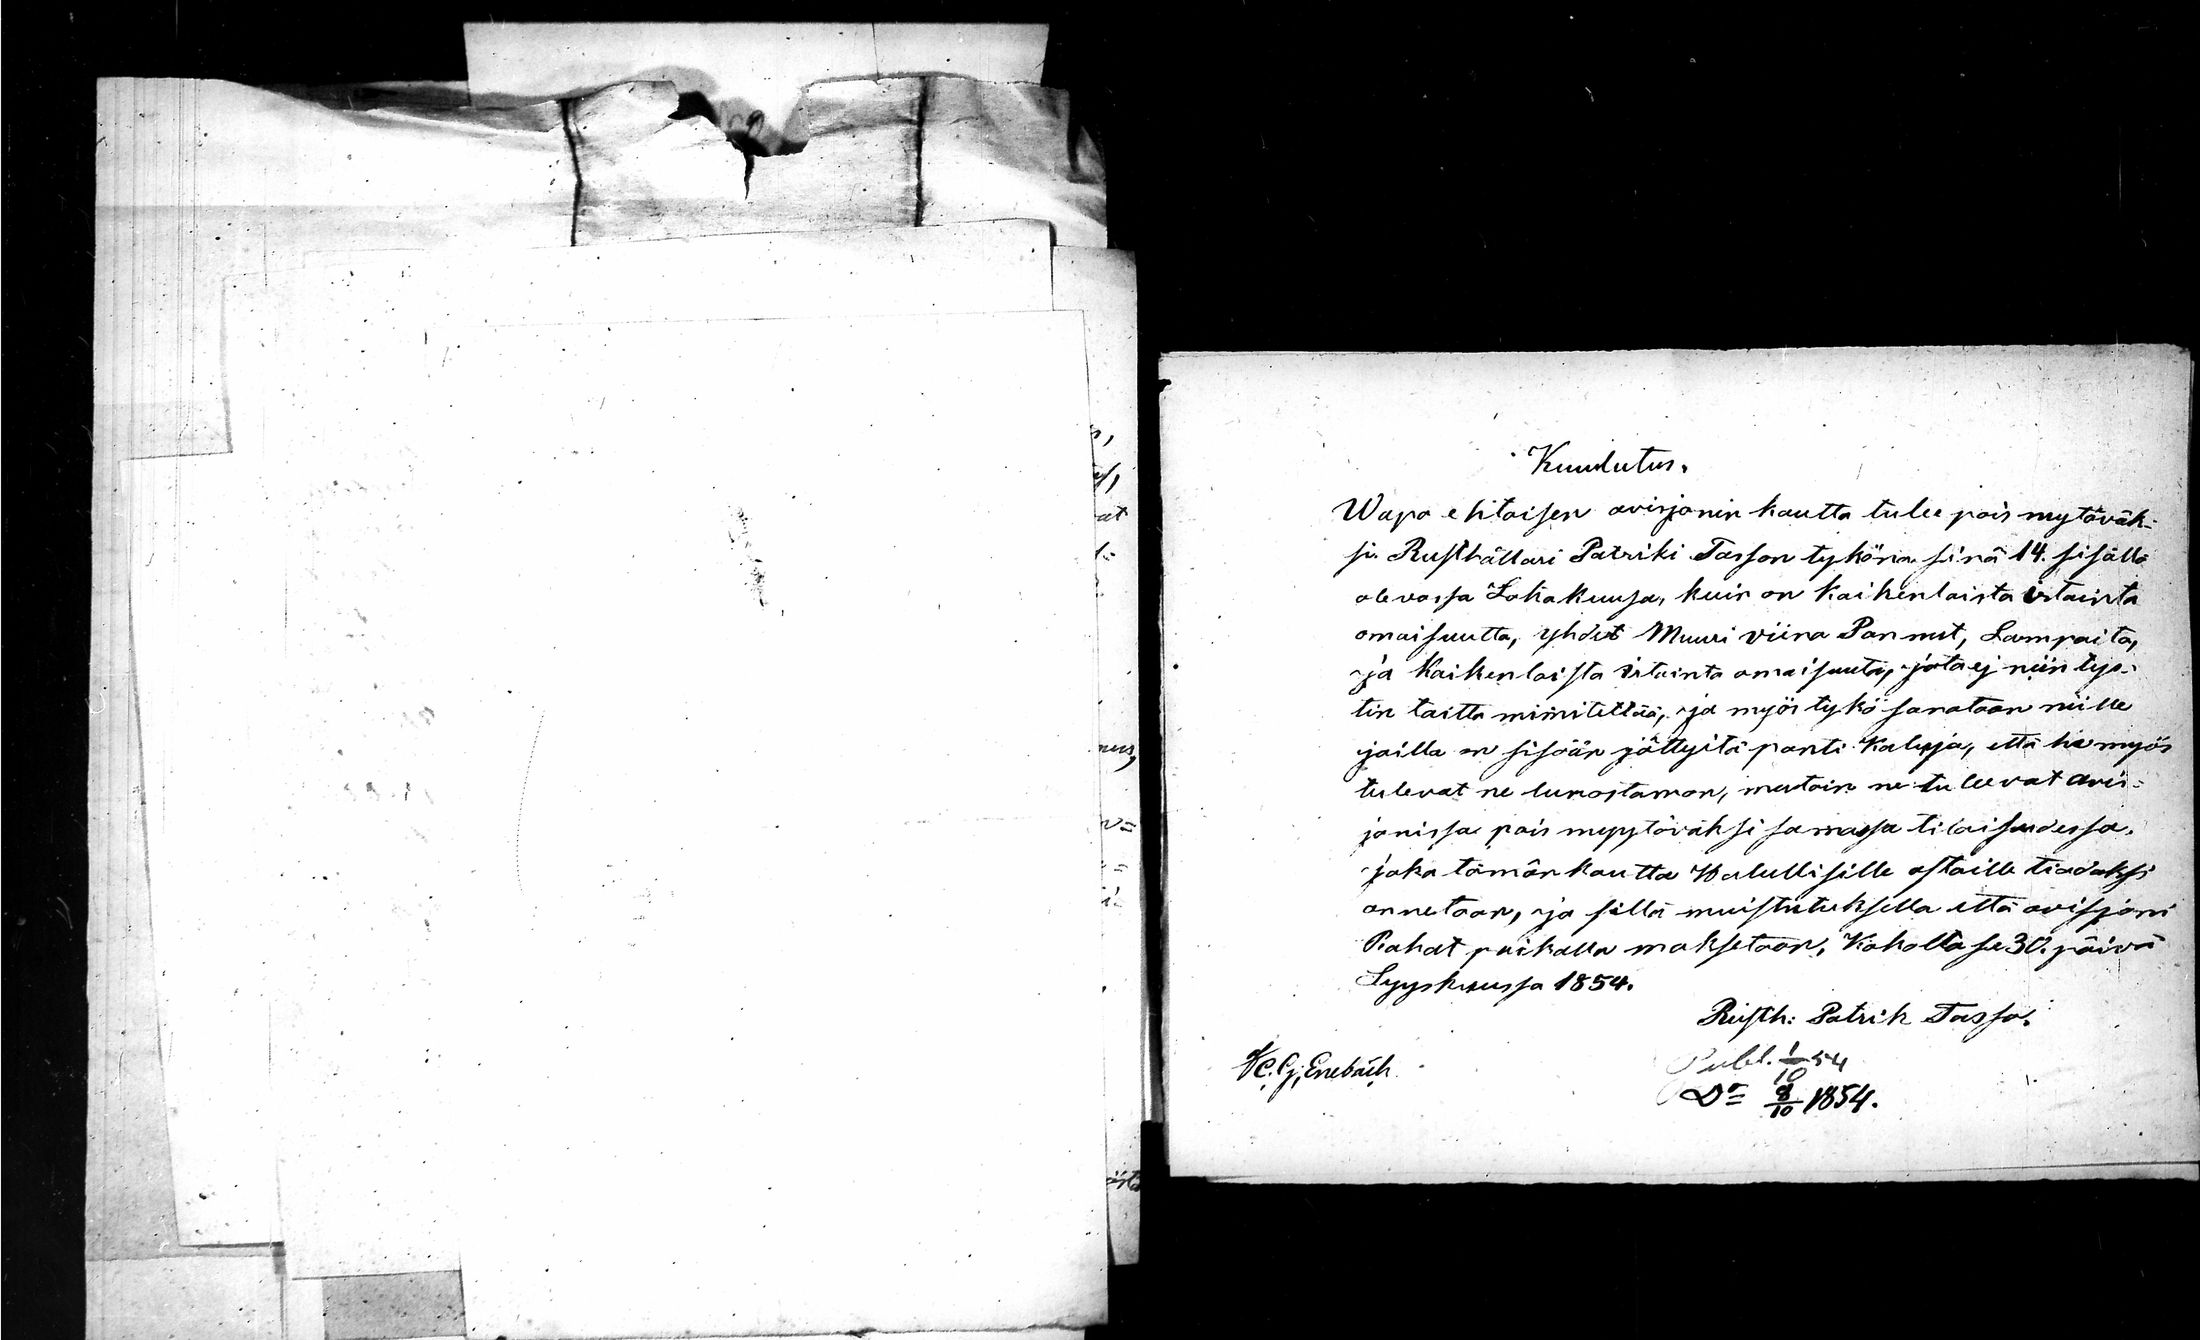 Kuulutus.
Wapa ehtoisen avisjonin kautta tulee pois mytäväk-
si Rusthållari Patriki Tasson tykönä sinä 14. sisällä
olevassa Lokakuusa, kuin on kaikenlaista irtainta
omaisuutta, yhdet Muuri viina Pannut, Lampaita,
ja kaikenlaista irtainta omaisuuta, jota ej niin tys-
tin taitta nimitettää, ja myös tykö sanataan niille
joilla on sisään jättyitä panti Kaluja, että he myös
tulevat ne lunastaman, mutoin ne tuleevat avis-
jonissa pois myytäväksi samassa tilaisudessa.
joka tämän kautta Halullisille ostaille tiadoksi
annetaan, ja sillä muistutuksella että avisjoni
Rahat paikalla maksetaan, Kakolta se 30. päivä
Syyskuussa 1854.
Rusth: Patrik Tasso.
C. G. Enebäck
Publ. 1/10 54
Do= 8/10 1854.